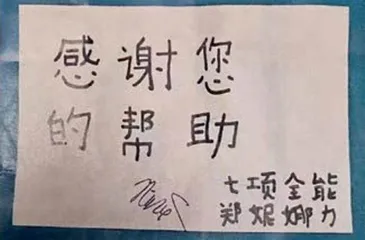 感谢您
的帮助
七项全能
郑妮娜力